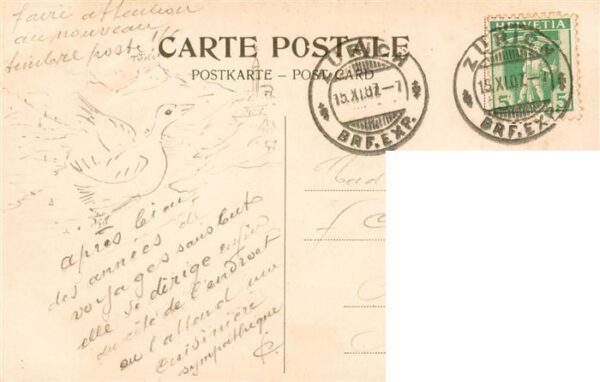 faire attention
au nouveau
timbre poste
CARTE POSTALE
POSTKARTE – POST CARD
ZÜRICH
15.XI.07.–7
BRF.EXP.
HELVETIA
5
5
ZÜRICH
15.XI.07.–7
BRF.EXP.
après bien
des années de
voyages sans buts
elle se dirige enfin
du côté de l'endroit
ou l'attend un
cuisinière
sympathique